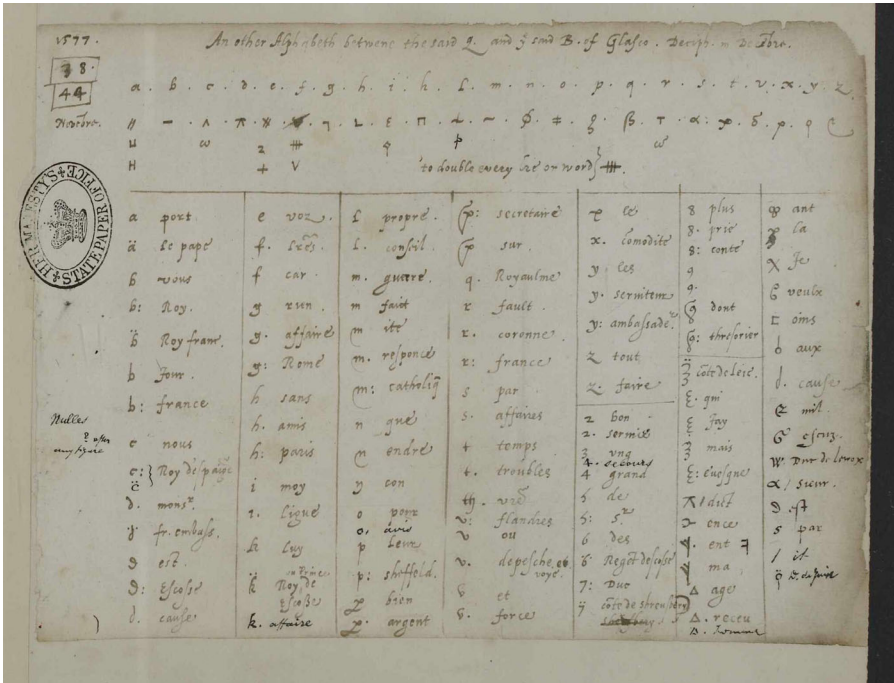 1577.
An other Alphabeth betwene the said Q. and yͤ said B. of Glasco. Deciph. in
38.
44
a. b. c. d. e. f. g. h. i. k. l. m. n. o. p. q. r. s. t. v. x. y. z.
to double every lre or word
a port
ä le pape
b vous
b: Roy.
b̈ Roy franc.
b Jour.
b: france
Nulles
c nous
c: Roy despaigne
c̈
d. monsr.
fr. embass.
est.
Escosse
d. cause
e voz.
f. lres.
f car.
g un
g. affaire
g: Rome
h sans
h. amis
h: paris
i moy
ligue
k luy
k Roy de
Escosse
k. affaire
l propre.
l. conseil
m. guerre.
m faict
m ite
m. responce
m: catholiq
n que
n endre
y con
o pour
o. avis
p leur
p: sheffeld.
bien
argent
secretaire
sur.
q. Royaulme
r fault.
r. coronne
r: france
s par
s. affaires
t temps
t. troubles
th. vre
v: flandres
v ou
v. depesche, et
voye.
v et
v. force
x le
x. comodite
y les
y. serviteur
y: ambassader.
z tout
z: faire
2 bon
2. service
3 ung
4. secours
4 grand
5 de
5: Sr
6 des
6. Reget descosse
7: Duc
conte de shreusbery
8 plus
8. prie
8: conte
9
9.
dont
thresorier
conte de Leic.
qui
Jay
mais
evesque
dict
ence
ent
ma
age
Δ. receu
ant
la
Je
veulx
oins
aux
d. cause
mil.
escuz.
w. Duc de lenox
α / sieur.
est
s par
/ il